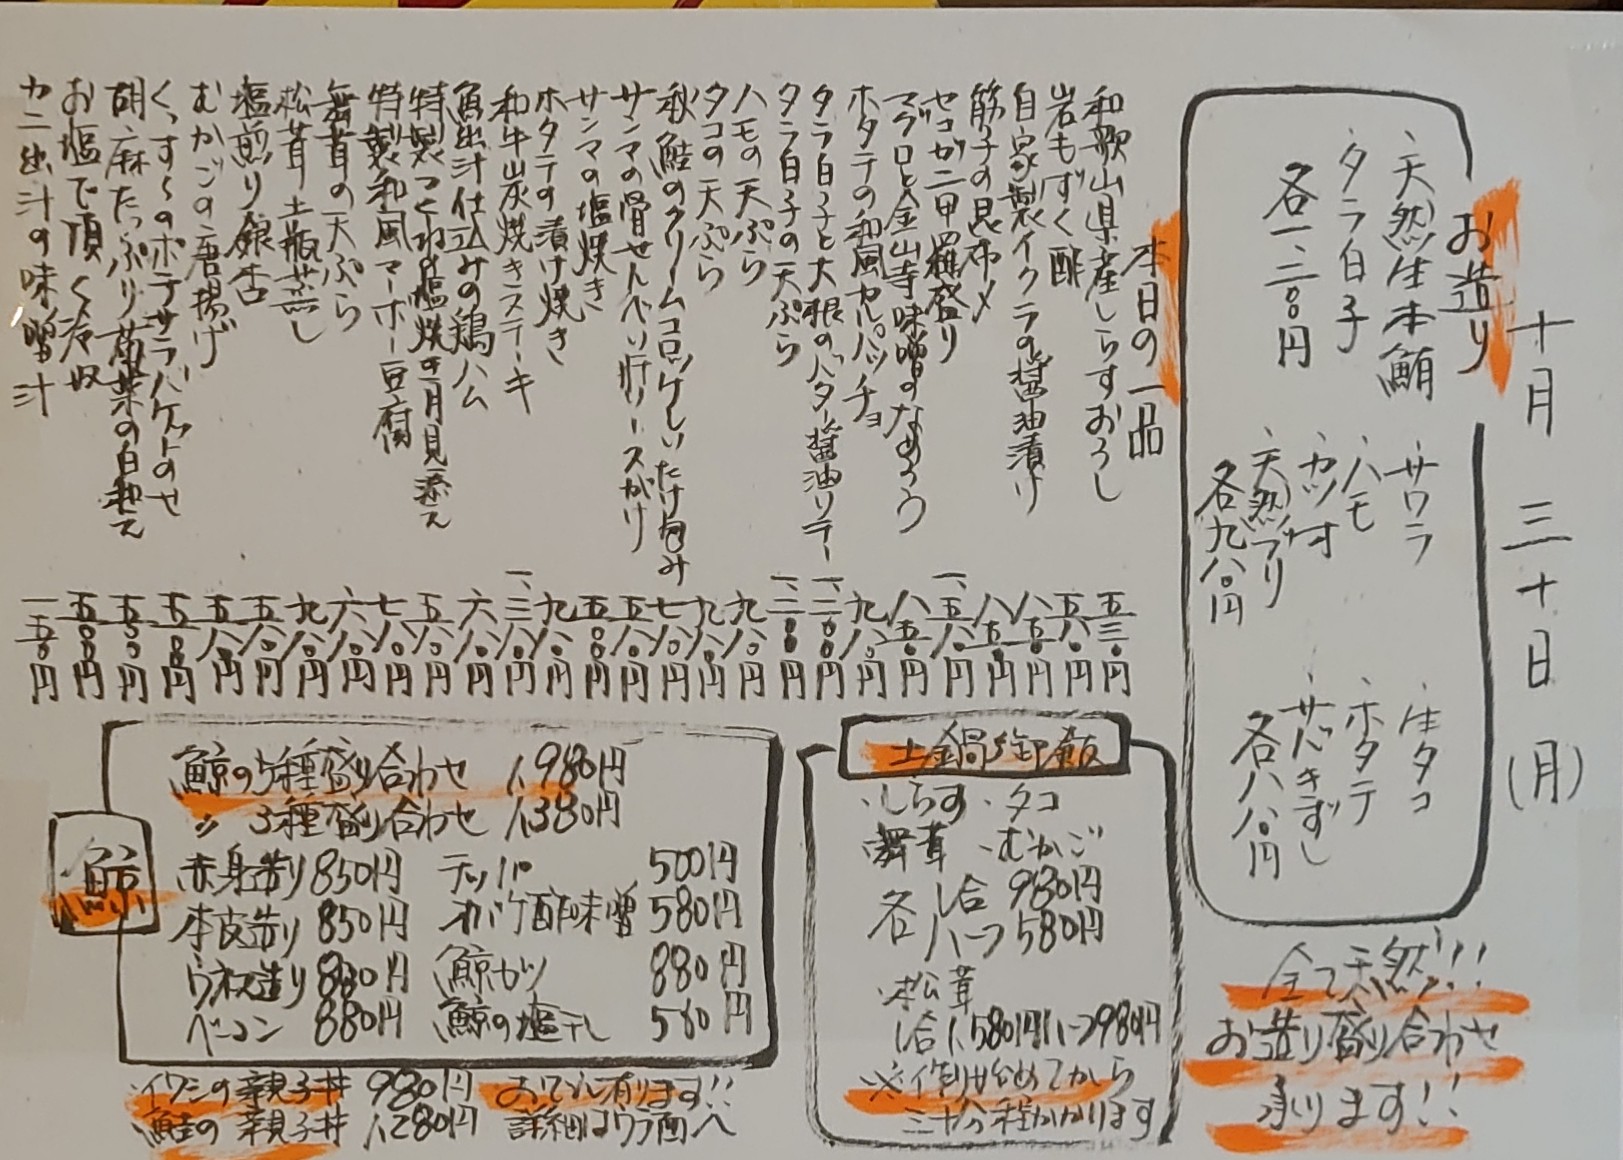 十月三十日(月)
お造り
・天然生本鮪
・タラ白子
各一、二〇〇円
・サワラ
・ハモ
・カツオ
・天然ブリ
各九八〇円
・生タコ
・ホタテ
・サバきずし
各八八〇円
全て天然!!!
お造り盛り合わせ
承ります!!
本日の一品
和歌山県産しらすおろし 五三〇円
岩もずく酢 五八〇円
自家製イクラの醤油漬け 八五〇円
筋子の昆布〆 八五〇円
セコガニ甲羅盛り 一、五八〇円
マグロと金山寺味噌のなめろう 八五〇円
ホタテの和風カルパッチョ 九八〇円
タラ白子と大根のバター醤油ソテー 一、二〇〇円
タラ白子の天ぷら 一、二〇〇円
ハモの天ぷら 九八〇円
タコの天ぷら 九八〇円
秋鮭のクリームコロッケしいたけ包み 七八〇円
サンマの骨せんべい肝ソースがけ 五八〇円
サンマの塩焼き 五〇〇円
ホタテの漬け焼き 九八〇円
和牛炭焼きステーキ 一、三八〇円
魚出汁仕込みの鶏ハム 六八〇円
特製つくねの塩焼き月見添え 五八〇円
特製和風マーボー豆腐 七八〇円
舞茸の天ぷら 六八〇円
松茸土瓶蒸し 九八〇円
塩煎り銀杏 五八〇円
むかごの唐揚げ 五八〇円
くっすんのポテサラバゲットのせ 五五〇円
胡麻たっぷり菊菜の白和え 五五〇円
お塩で頂く冷奴 五〇〇円
カニ出汁の味噌汁 一五〇円
土鍋御飯
・しらす・タコ
・舞茸・むかご
各1合 980円
各ハーフ580円
・松茸
1合1,580円ハーフ980円
※作り始めてから
三十分程かかります
鯨
鯨の5種盛り合わせ 1,980円
〃 3種盛り合わせ 1,380円
赤身造り 850円 テッパ 500円
本皮造り 850円 オバケ酢味噌 580円
ウネス造り 880円 鯨カツ 880円
ベーコン 880円 鯨の塩干し 580円
・イワシの親子丼 980円 おでん有ります!!
・鮭の親子丼 1,280円 詳細はウラ面へ